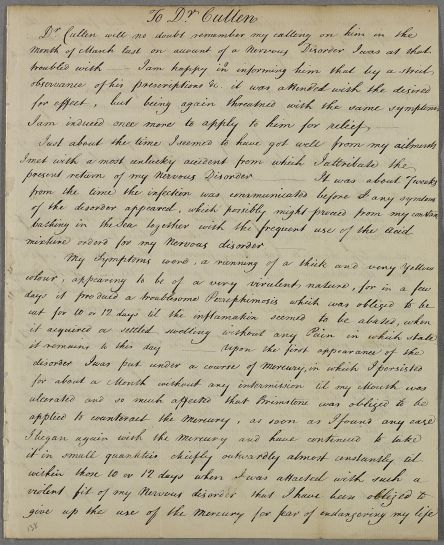 To Dr Cullen
Dr Cullen will no doubt remember my calling on him in the
month of March last on account of a Nervous Disorder I was at that
troubled with — I am happy in informing him that by a strict
observance of his prescriptions &c. it was attended with the desired
for effect, but being again threatned with the same symptoms
I am induced once more to apply to him for relief
Just about the time I seemed to have got well from my ailments
I met with a most unlucky accident from which I attribute the
present return of my Nervous Disorder — It was about 7 weeks
from the time the infection was communicated before I any symtom
of the disorder appeared, which possibly might proceed from my
bathing in the Sea together with the frequent use of the Acid
mixture orderd for my Nervous disorder
My Symptoms were, a running of a thick and very Yellow
colour, appearing to be of a very virulent nature, for in a few
days it produced a troublesome which was obliged to be
cut for 10 or 12 days til the inflamation seemed to be abated, when
it acquired a settled swelling without any Pain in which state
it remains to this day — Upon the first appearance of the
disorder I was put under a course of Mercury, in which I persisted
for about a Month without any intermission til my Mouth was
ulcerated and so much affected that Brimstone was obliged to be
applied to counteract the Mercury, as soon as I found any ease
I began again with the Mercury and have continued to take
it in small quantities chiefly outwardly almost constantly til
within these 10 or 12 days when I was attacked with such a
violent fit of my Nervous disorder that I have been obliged to
give up the use of the Mercury for fear of endangering my life